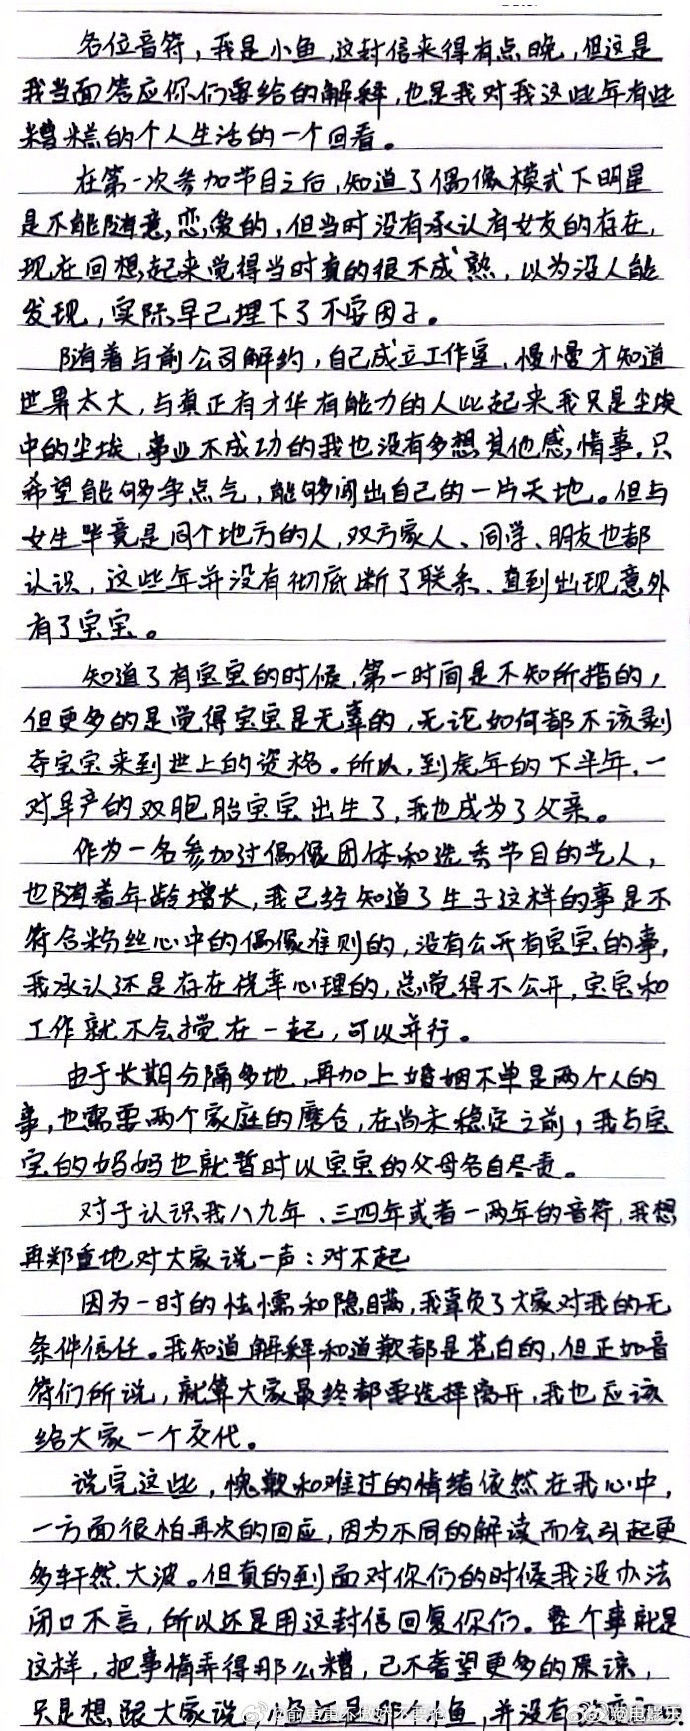 各位音符，我是小鱼，这封信来得有点晚，但这是
我当面答应你们要给的解释，也是我对我这些年有些
糟糕的个人生活的一个回看。
在第一次参加节目之后，知道了偶像模式下明星
是不能随意恋爱的，但当时没有承认有女友的存在，
现在回想起来觉得当时真的很不成熟，以为没人能
发现，实际早已埋下了不安因子。
随着与前公司解约，自己成立工作室，慢慢才知道
世界太大，与真正有才华有能力的人比起来我只是尘埃
中的尘埃，事业不成功的我也没有多想其他感情事，只
希望能够争点气，能够闯出自己的一片天地。但与
女生毕竟是同个地方的人，双方家人、同学、朋友也都
认识，这些年并没有彻底断了联系、直到出现意外
有了宝宝。
知道了有宝宝的时候，第一时间是不知所措的，
但更多的是觉得宝宝是无辜的，无论如何都不该剥
夺宝宝来到世上的资格。所以，到虎年的下半年，一
对早产的双胞胎宝宝出生了，我也成为了父亲。
作为一名参加过偶像团体和选秀节目的艺人，
也随着年龄增长，我已经知道了生子这样的事是不
符合粉丝心中的偶像准则的，没有公开有宝宝的事，
我承认还是存在侥幸心理的，总觉得不公开，宝宝和
工作就不会搅在一起，可以并行。
由于长期分隔多地，再加上婚姻不单是两个人的
事，也需要两个家庭的磨合，在尚未稳定之前，我与宝
宝的妈妈也就暂时以宝宝的父母各自尽责。
对于认识我八九年、三四年或者一两年的音符，我想
再郑重地对大家说一声：对不起
因为一时的怯懦和隐瞒，我辜负了大家对我的无
条件信任。我知道解释和道歉都是苍白的，但正如音
符们所说，就算大家最终都要选择离开，我也应该
给大家一个交代。
说完这些，愧歉和难过的情绪依然在我心中，
一方面很怕再次的回应，因为不同的解读而会引起更
多轩然大波。但真的到面对你们的时候我没办法
闭口不言，所以还是用这封信回复你们。整个事就是
这样，把事情弄得那么糟，已不奢望更多的原谅，
只是想跟大家说，小鱼，并没有